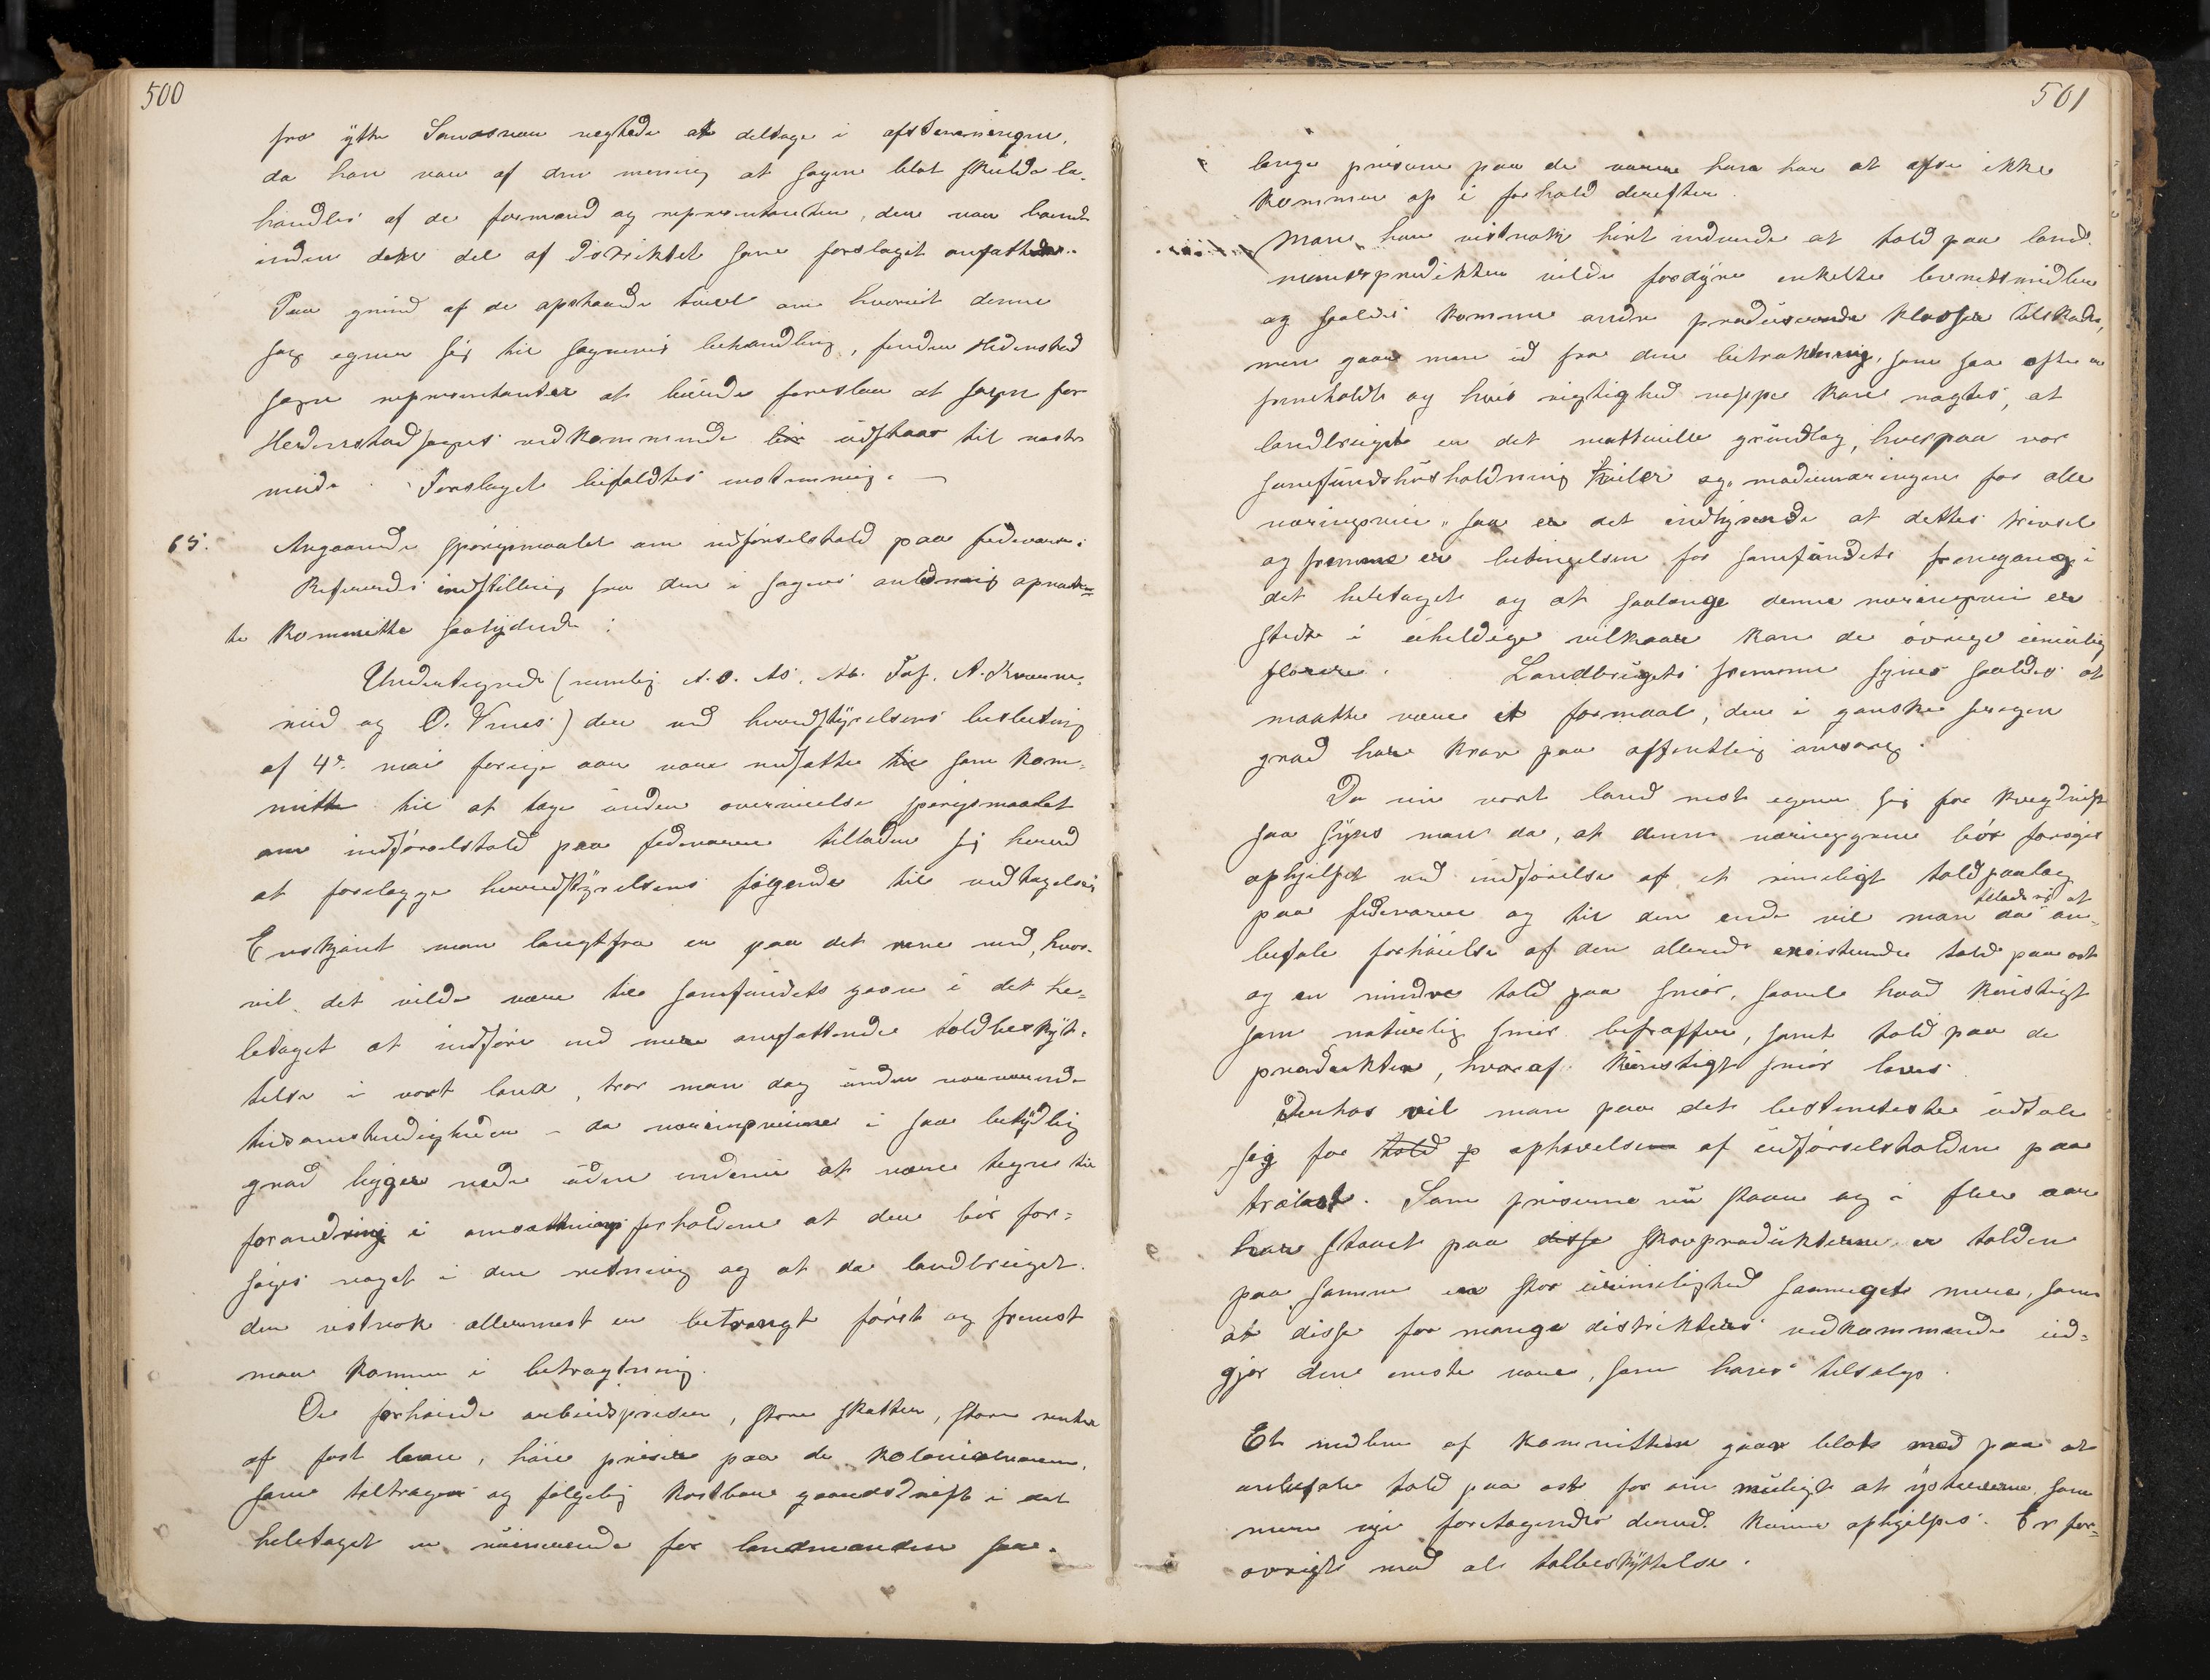 500
fra ytre Sandsvær negtede at deltage i afstemningen,
da han var af den mening at sagen blot skulde be-
handles af de formænd og repræsentanter, der var boende
inden den del af distriktet som forslaget omfatter.
Paa grund af de opstaaede tvivl om hvorvidt denne
sag egner sig til sagnevis behandling, finder Hedenstad
sogns repræsentanter at burde foreslaa at sagen for
Hedenstad sogns vedkommende bør udstaar til næste
møde. Forslaget bifaldtes enstemmig. —
65. Angaaende spørgsmaalet om indførselstold paa fedevarer:
Refereredes indstilling fra den i sagens anledning opnævn-
te kommitte saalydende:
Undertegnede (nemlig A. O. As, Ab. Taf. A. Kvarne-
mid og O. Vrnes) der ved herredstyrelsens beslutning
af 4de mai forrige aar var nedsatte til som kom-
mitte til at tage under overveielse spørgsmaalet
om indførselstold paa fedevarer tillader sig herved
at forelægge herredstyrelsens følgende til vedtagelse:
Endskjønt man langtfra er paa det rene med, hvor-
vidt det vilde være til samfundets gavn i det he-
letaget at indføre ved mere omfattende toldbeskyt-
telse i vort land, tror man dog under nærværende
tidsomstændigheder – da næringsveiene i saa betydelig
grad ligger nede uden endnu at være tegne til
forandring i omsætningsforholdene at der bør for-
søges noget i den retning og at da landbruget
der vistnok allermest er betrængt først og fremst
maa komme i betragtning.
De forhøiede arbeidspriser, store skatter, store renter
af fast laan, høie priser paa de kolonialvarer,
som tiltrænges og følgelig kostbare gaardsdrift i det
heletaget er ruinerende for landmanden saa-
501
længe priserne paa de varer han har at afse ikke
kommer op i forhold derefter.
Man har vistnok hørt indvende at told paa land-
mandsprodukter vilde fordyre enkelte levnetsmidler
og saaledes komme andre produserende klasser tilskade,
men gaar man ud fra den betraktning, som saa ofte er
fremholdt og hvis rigtighed neppe kan nægtes, at
landbruget er det matrielle grundlag, hvorpaa vor
samfundshusholdning hviler og „modernæringen for alle
næringsveie“ saa er det indlysende at dettes trivsel
og fremme er betingelsen for samfundets fremgang i
det heletaget og at saalænge denne næringsvei er
stedt i uheldige vilkaar kan de øvrige umulig
florere. Landbrugets fremme synes saaledes at
maatte være et formaal, der i ganske særegen
grad har krav paa offentlig omsorg.
Da nu vort land mest egner sig for kvægdrift
saa synes man da, at denne næringsgren bør søges
ophjelpet ved indførelse af et rimeligt toldpaalæg
paa fedevarer og til den ende vil man da tillade sig at an-
befale forhøielse af den allerede existerende told paa ost
og en mindre told paa smør, saavel hvad kunstigt
som naturlig smør befræffer, samt told paa de
produkter, hvoraf kunstigt smør laves.
Derhos vil man paa det bestemteste udtale
sig for told p ophævelsen af udførselstolden paa
trælast. Som priserne nu staar og i flere aar
har staaet paa disse skovprodukterne er tolden
paa samme en stor urimelighed saameget mere, som
at disse for mange distrikters vedkommende ud-
gjør den eneste vare, som haves tilsalgs.
Et medlem af kommitteen gaar blot med paa at
anbefale told paa ost for om muligt at ysterierne som
nye foretagender derved kunne ophjelpes. Er for-
øvrigt mod al tolbeskyttelse.